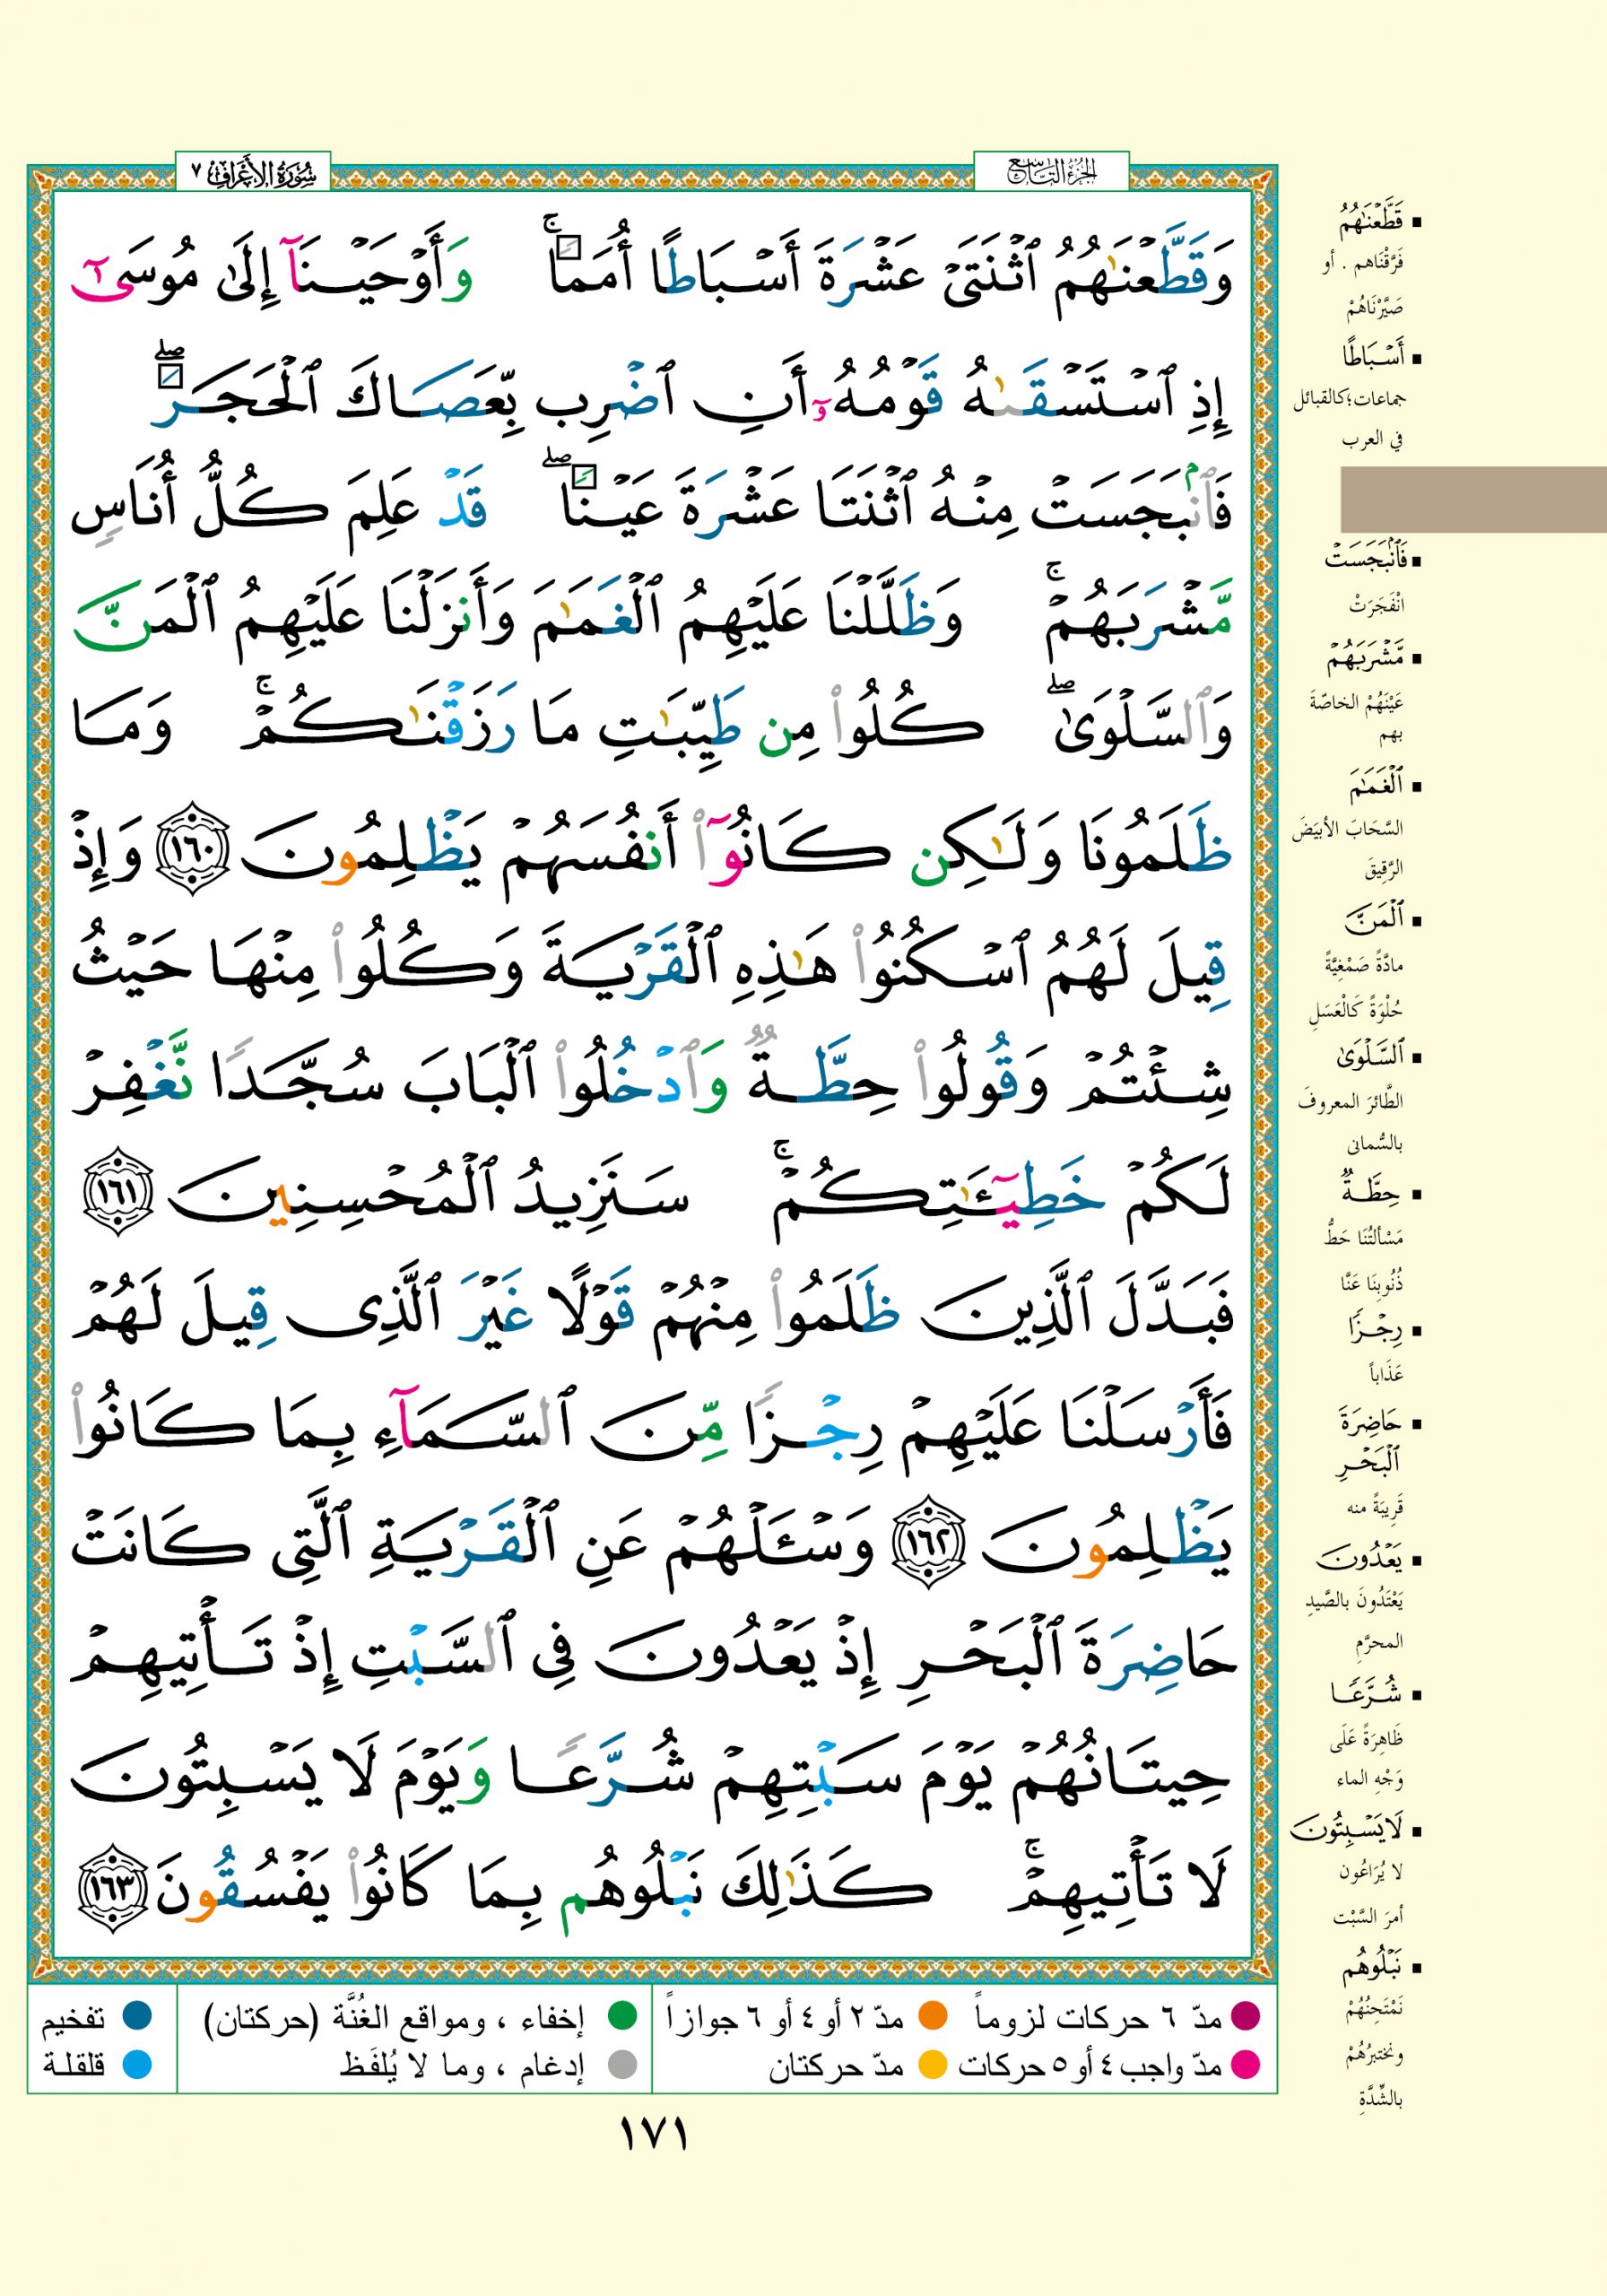 الجزء التاسع
سورة الأعراف ٧
وَقَطَّعۡنَٰهُمُ ٱثۡنَتَيۡ عَشۡرَةَ أَسۡبَاطًا أُمَمٗاۚ وَأَوۡحَيۡنَآ إِلَىٰ مُوسَىٰٓ
إِذِ ٱسۡتَسۡقَىٰهُ قَوۡمُهُۥٓ أَنِ ٱضۡرِب بِّعَصَاكَ ٱلۡحَجَرَۖ
فَٱنۢبَجَسَتۡ مِنۡهُ ٱثۡنَتَا عَشۡرَةَ عَيۡنٗاۖ قَدۡ عَلِمَ كُلُّ أُنَاسٖ
مَّشۡرَبَهُمۡۚ وَظَلَّلۡنَا عَلَيۡهِمُ ٱلۡغَمَٰمَ وَأَنزَلۡنَا عَلَيۡهِمُ ٱلۡمَنَّ
وَٱلسَّلۡوَىٰۖ كُلُواْ مِن طَيِّبَٰتِ مَا رَزَقۡنَٰكُمۡۚ وَمَا
ظَلَمُونَا وَلَٰكِن كَانُوٓاْ أَنفُسَهُمۡ يَظۡلِمُونَ ١٦٠ وَإِذۡ
قِيلَ لَهُمُ ٱسۡكُنُواْ هَٰذِهِ ٱلۡقَرۡيَةَ وَكُلُواْ مِنۡهَا حَيۡثُ
شِئۡتُمۡ وَقُولُواْ حِطَّةٞ وَٱدۡخُلُواْ ٱلۡبَابَ سُجَّدٗا نَّغۡفِرۡ
لَكُمۡ خَطِيٓـَٰٔتِكُمۡۚ سَنَزِيدُ ٱلۡمُحۡسِنِينَ ١٦١
فَبَدَّلَ ٱلَّذِينَ ظَلَمُواْ مِنۡهُمۡ قَوۡلًا غَيۡرَ ٱلَّذِي قِيلَ لَهُمۡ
فَأَرۡسَلۡنَا عَلَيۡهِمۡ رِجۡزٗا مِّنَ ٱلسَّمَآءِ بِمَا كَانُواْ
يَظۡلِمُونَ ١٦٢ وَسۡـَٔلۡهُمۡ عَنِ ٱلۡقَرۡيَةِ ٱلَّتِي كَانَتۡ
حَاضِرَةَ ٱلۡبَحۡرِ إِذۡ يَعۡدُونَ فِي ٱلسَّبۡتِ إِذۡ تَأۡتِيهِمۡ
حِيتَانُهُمۡ يَوۡمَ سَبۡتِهِمۡ شُرَّعٗا وَيَوۡمَ لَا يَسۡبِتُونَ
لَا تَأۡتِيهِمۡۚ كَذَٰلِكَ نَبۡلُوهُم بِمَا كَانُواْ يَفۡسُقُونَ ١٦٣
قَطَّعۡنَٰهُمُ
فَرَّقْنَاهم . أو
صَيَّرْنَاهُمْ
أَسۡبَاطًا
جماعات؛كالقبائل
في العرب
فَٱنۢبَجَسَتۡ
انْفَجَرَتْ
مَّشۡرَبَهُمۡ
عَيْنَهُمْ الخاصّةَ
بهم
ٱلۡغَمَٰمَ
السَّحَابَ الأبيَضَ
الرَّقِيقَ
ٱلۡمَنَّ
مادَّةً صَمْغِيَّةً
حُلْوَةً كَالْعَسَلِ
ٱلسَّلۡوَىٰ
الطَّائرَ المعروفَ
بالسُّمانى
حِطَّةٞ
مَسْألتُنَا حَطُّ
ذُنُوبِنَا عَنَّا
رِجۡزٗا
عَذَاباً
حَاضِرَةَ
ٱلۡبَحۡرِ
قَرِيبَةً منه
يَعۡدُونَ
يَعْتَدُونَ بالصَّيدِ
المحرَّمِ
شُرَّعٗا
ظَاهِرَةً عَلَى
وَجْهِ الماء
لَا يَسۡبِتُونَ
لا يُرَاعُون
أمرَ السَّبْت
نَبۡلُوهُم
نَمْتَحِنُهُمْ
ونختبرُهُمْ
بالشِّدَّةِ
مدّ ٦ حركات لزوماً مدّ ٢ أو ٤ أو ٦ جوازاً
مدّ واجب ٤ أو ٥ حركات مدّ حركتان
إخفاء ، ومواقع الغُنَّة (حركتان)
إدغام ، وما لا يُلفَظ
تفخيم
قلقلة
١٧١